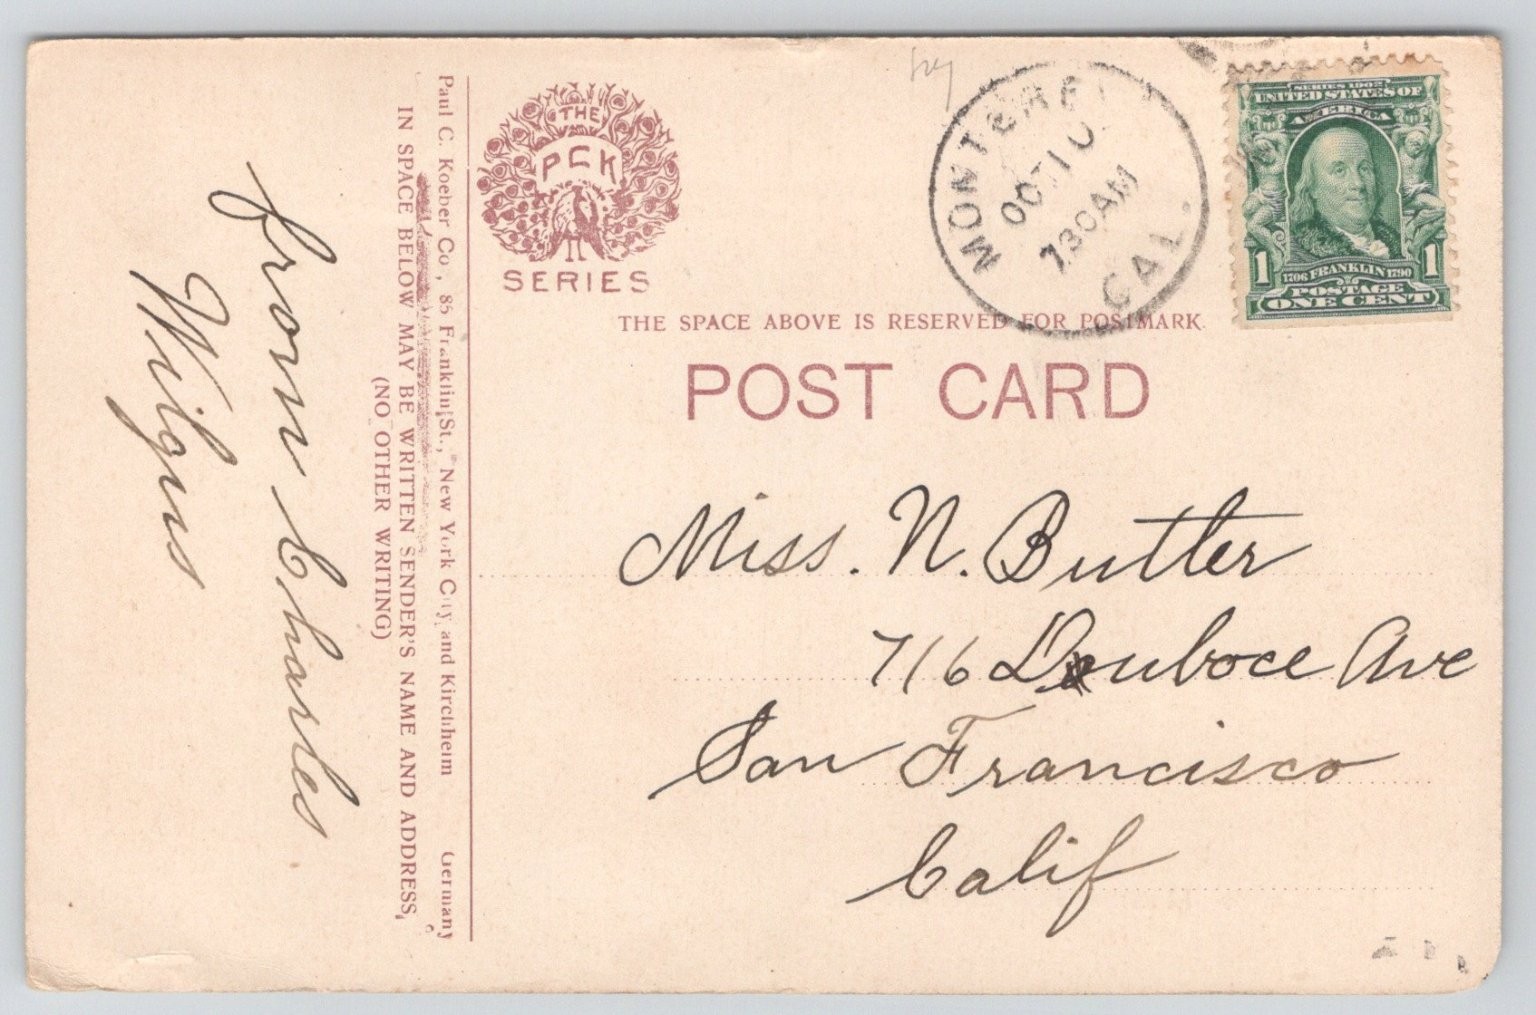 Paul C. Koeber Co., 85 Franklin St., New York City, and Kirchheim Germany
IN SPACE BELOW MAY BE WRITTEN SENDER'S NAME AND ADDRESS,
(NO OTHER WRITING)
from Charles
Wilgus
THE
PCK
SERIES
MONTEREY
OCT 10
7 30 AM
CAL.
SERIES 1902
UNITED STATES OF
AMERICA
1 1
1706 FRANKLIN 1790
POSTAGE
ONE CENT
THE SPACE ABOVE IS RESERVED FOR POSTMARK.
POST CARD
Miss. N. Butler
716 Duboce Ave
San Francisco
Calif